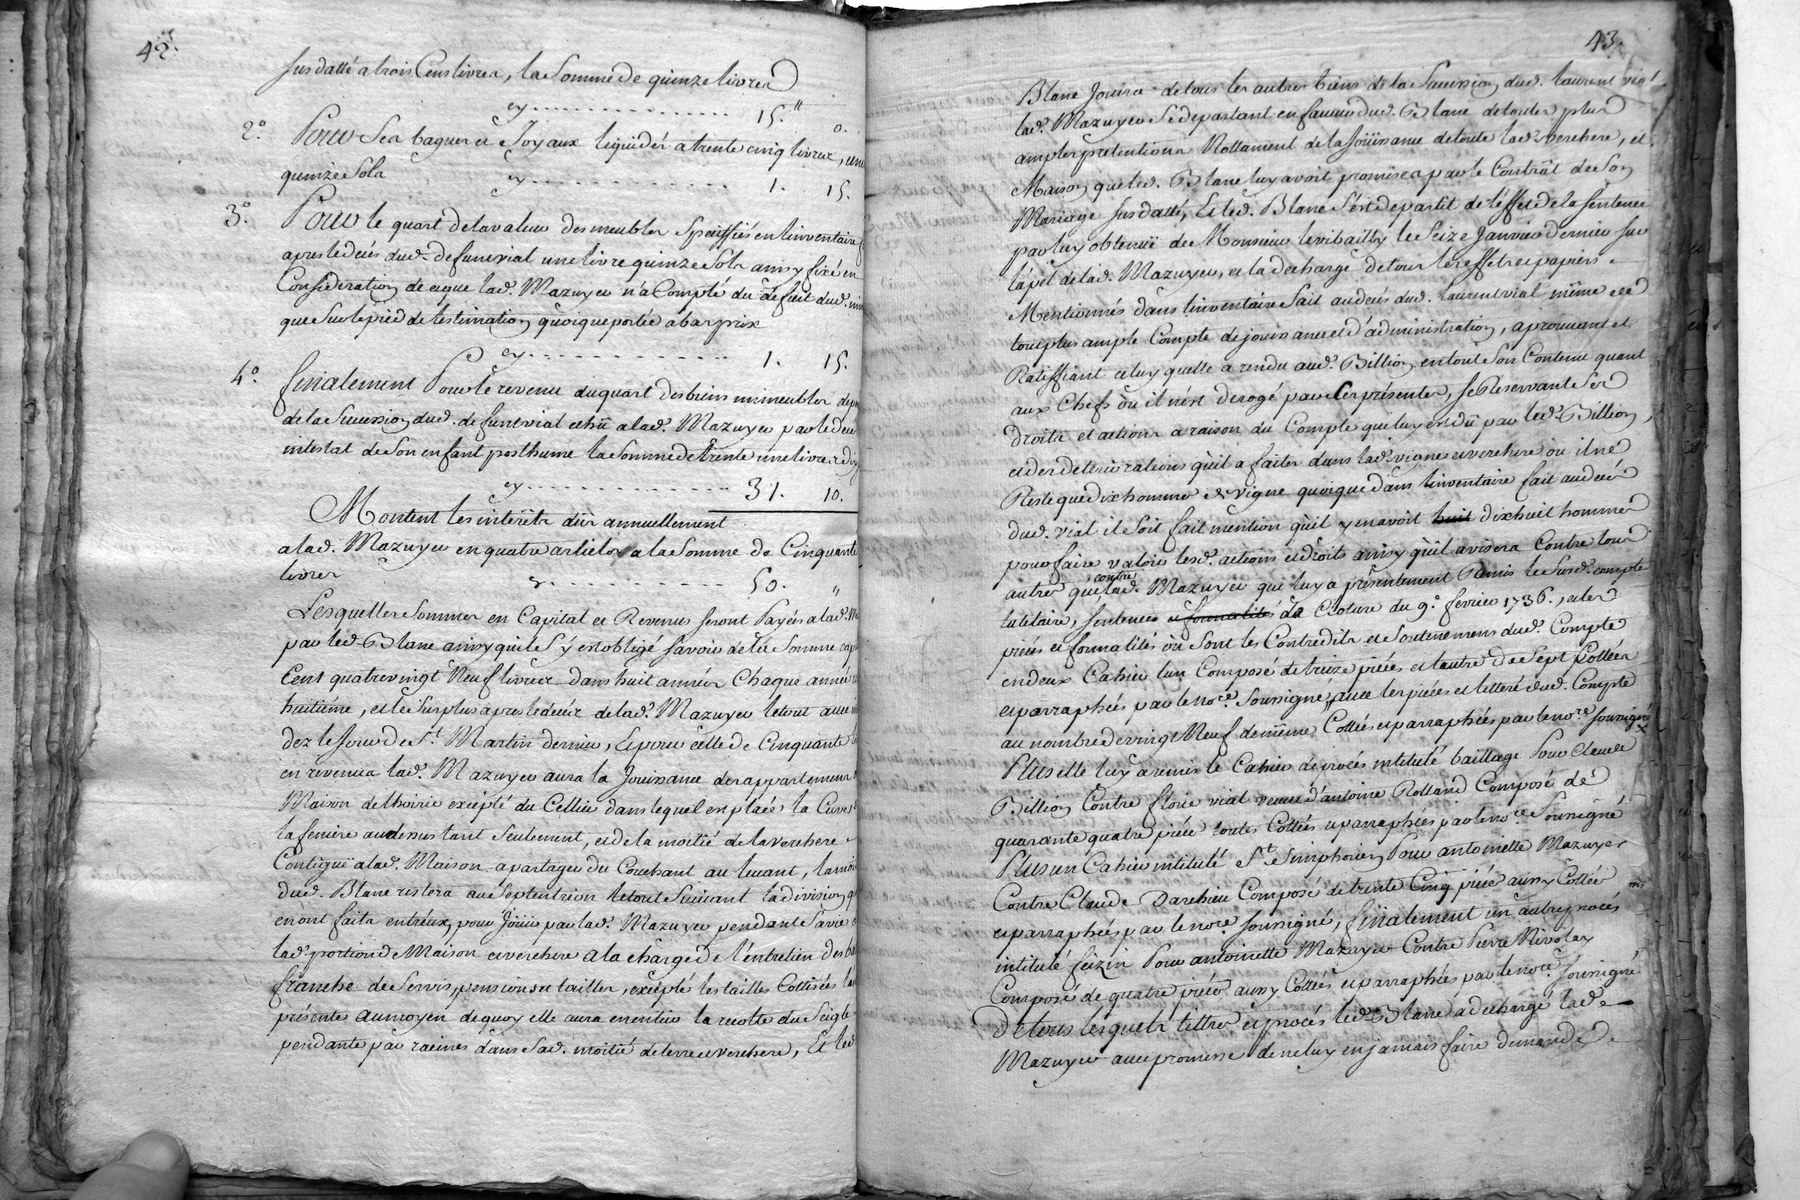 42.
sus datté a trois Cens livres, la Somme de quinze livres
cy 15. "
2º. Pour Ses bagues et Joyaux liquidés a trente cinq livres, une
quinze Sols cy 1. 15.
3º. Pour le quart de la valeur des meubles Speciffiés en linventaire
apres le decés dud. defunt vial une livre quinze Sols ainsy fixé en
Consideration de ce que lad. Mazuyer n'a Compté du deficit dud.
que Sur le pied de lestimation quoique portée a bas prix
cy 1. 15.
4º. finalement Pour le revenu du quart des biens immeubles
de la Sucession dud. defunt vial echû a lad. Mazuyer par le deces
intestat de Son enfant posthume la Somme de trente une livres dix
cy 31. 10.
Montent les interêts dûs annuellement
a lad. Mazuyer en quatre articles a la Somme de Cinquante
livres cy 50. "
Lesquelles Sommes en Capital et Revenus seront Payés a lad.
par led. Blanc ainsy quil s'y est obligé savoir de la Somme
Cent quatre vingt Neuf livres dans huit années Chaque année
huitiéme, et le Surplus apres le deces de lad. Mazuyer le tout avec
dez la feste de St. Martin dernier, Et pour celle de Cinquante
en revenus lad. Mazuyer aura la Jouissance des appartemens
Maison de thoirie excépté du Cellier dans lequel est placé la Cuve
la feniére au dessus tant seulement, et de la moitié de la verchere
Contiguë a lad. Maison a partager du Couchant au levant, la
dud. Blanc restera au Septentrion le tout Suivant la division
en ont faits entréux, pour Jouir par lad. Mazuyer pendant Sa vie
lad. portion de Maison et verchere a la charge de l'entretien des
franche de Servis, pensions et tailles, excépté les tailles Cottisées
présentes au moyen de quoy elle aura en entier la recolte du Seigle
pendante par racines dans Sad. moitié de terre et verchere, Et led.
43.
Blanc Jouira de tous les autres biens de la Sucession dud. Laurent vial
lad. Mazuyer se departant en faveur dud. Blanc de toutes plus
amples pretentions Nottament de la Joüissance de toute lad. verchere, et
Maison que led. Blanc luy avoit promises par le Contrât de Son
Mariage Sus datté, Et led. Blanc s'est departit de l'éffet de la sentence
par luy obtenuë de Monsieur le vibailly le Seize Janvier dernier sur
lápel de lad. Mazuyer, et la decharge de tous les effets et papiers
Mentionnés dans linventaire fait au decés dud. Laurent vial même de
tout plus ample Compte de jouissance et d'administration, aprouvant et
Ratiffiant celuy quelle a rendu aud. Billion en tout Son Contenu quant
aux Chefs où il n'ést derogé par les présentes, se Reservant Ses
droits et actions a raison du Compte que luy est dû par led. Billion,
et des deteriorations quil a faites dans lad. vigne et verchere où il né
Reste que dix hommes de vigne quoique dans linventaire fait au decés
dud. vial il soit fait mention qu'il y en avoit huit dixhuit hommes
pour faire valoir lesd. actions et droits ainsy qu'il avisera Contre tous
autres que contre lad. Mazuyer qui luy a présentement Remis le Susd. compte
tutélaire, sentence et formalités de Cloture du 9º. fevrier 1736., et les
piéces et formalités où sont les Contredits et soutenemens dud. Compte
en deux Cahiers lun Composé de treize piéces, et l'autre de Sept Cottées
et parraphées par le nore. soussigné, avec les piéces et lettres dud. Compte
au nombre de vingt Neuf de même Cottées et parraphées par le nore. soussigné
Plus elle luy a remis le Cahier de procés intitulé baillage Pour Claude
Billion Contre florie vial veuve d'antoine Rolland Composé de
quarante quatre piéces toutes Cottées et parraphées par le nore. Soussigné
Plus un Cahier intitulé St. Simphorien Pour antoinette Mazuyer
Contre Claude Darchieu Composé de trente Cinq piéces aussy Cottées
et parraphées par le nore. soussigné, finalement un autre procés
intitulé feizin Pour antoinette Mazuyer Contre Pierre Rivolay
Composé de quatre piéces aussy Cottées et parraphées par le nore. soussigné
De tous lesquels tittres et procés led. Blanc a dechargé lad.
Mazuyer avec promesse de ne luy en jamais faire demande